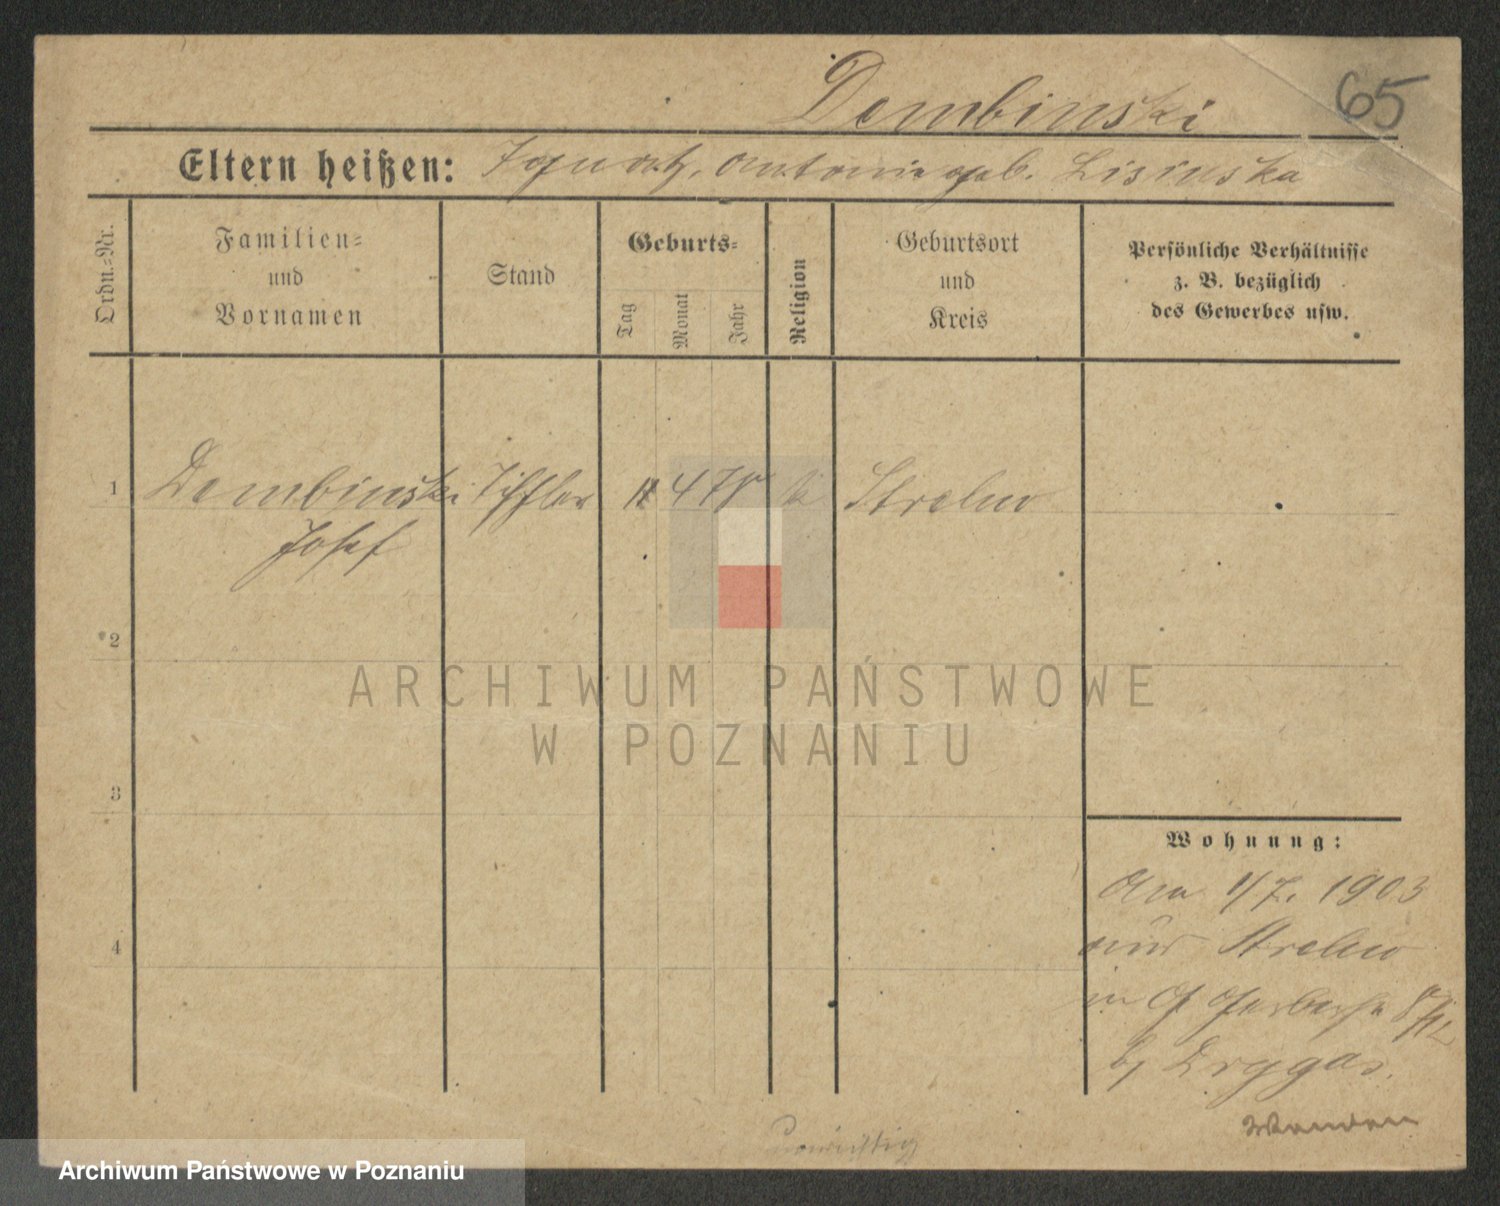 Dembinski
65
Eltern heißen: Ignatz, Antonie geb. Lisinska
Ordn.-Nr.
Familien-
und
Vornamen
Stand
Geburts-
Tag
Monat
Jahr
Religion
Geburtsort
und
Kreis
Persönliche Verhältnisse
z. B. bezüglich
des Gewerbes usw.
1 Dembinski Tischler 4 78 k Strelno
Josef
2
ARCHIWUM PAŃSTWOWE
W POZNANIU
3
Wohnung:
4
Am 1/7. 1903
aus Strelno
in Gr Gerberstr
bei Drygas.
Archiwum Państwowe w Poznaniu